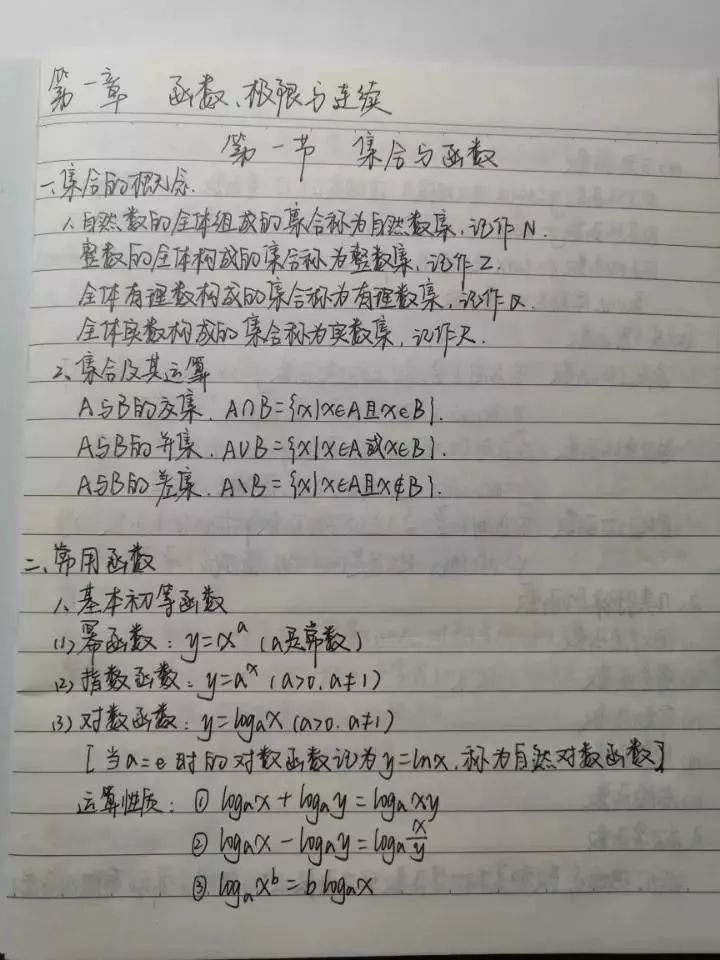 第一章 函数、极限与连续
第一节 集合与函数
一、集合的概念.
1、自然数的全体组成的集合称为自然数集，记作N.
整数的全体构成的集合称为整数集，记作Z.
全体有理数构成的集合称为有理数集，记作Q.
全体实数构成的集合称为实数集，记作R.
2、集合及其运算
A与B的交集. A∩B={x|x∈A且x∈B}.
A与B的并集. A∪B={x|x∈A或x∈B}.
A与B的差集. A\B={x|x∈A且x∉B}.
二、常用函数
1、基本初等函数
(1) 幂函数：y=xᵃ (a是常数)
(2) 指数函数：y=aˣ (a>0. a≠1)
(3) 对数函数：y=logₐx (a>0. a≠1)
[当a=e时的对数函数记为y=lnx，称为自然对数函数]
运算性质：① logₐx+logₐy=logₐxy
② logₐx-logₐy=logₐx/y
③ logₐxᵇ=b logₐx